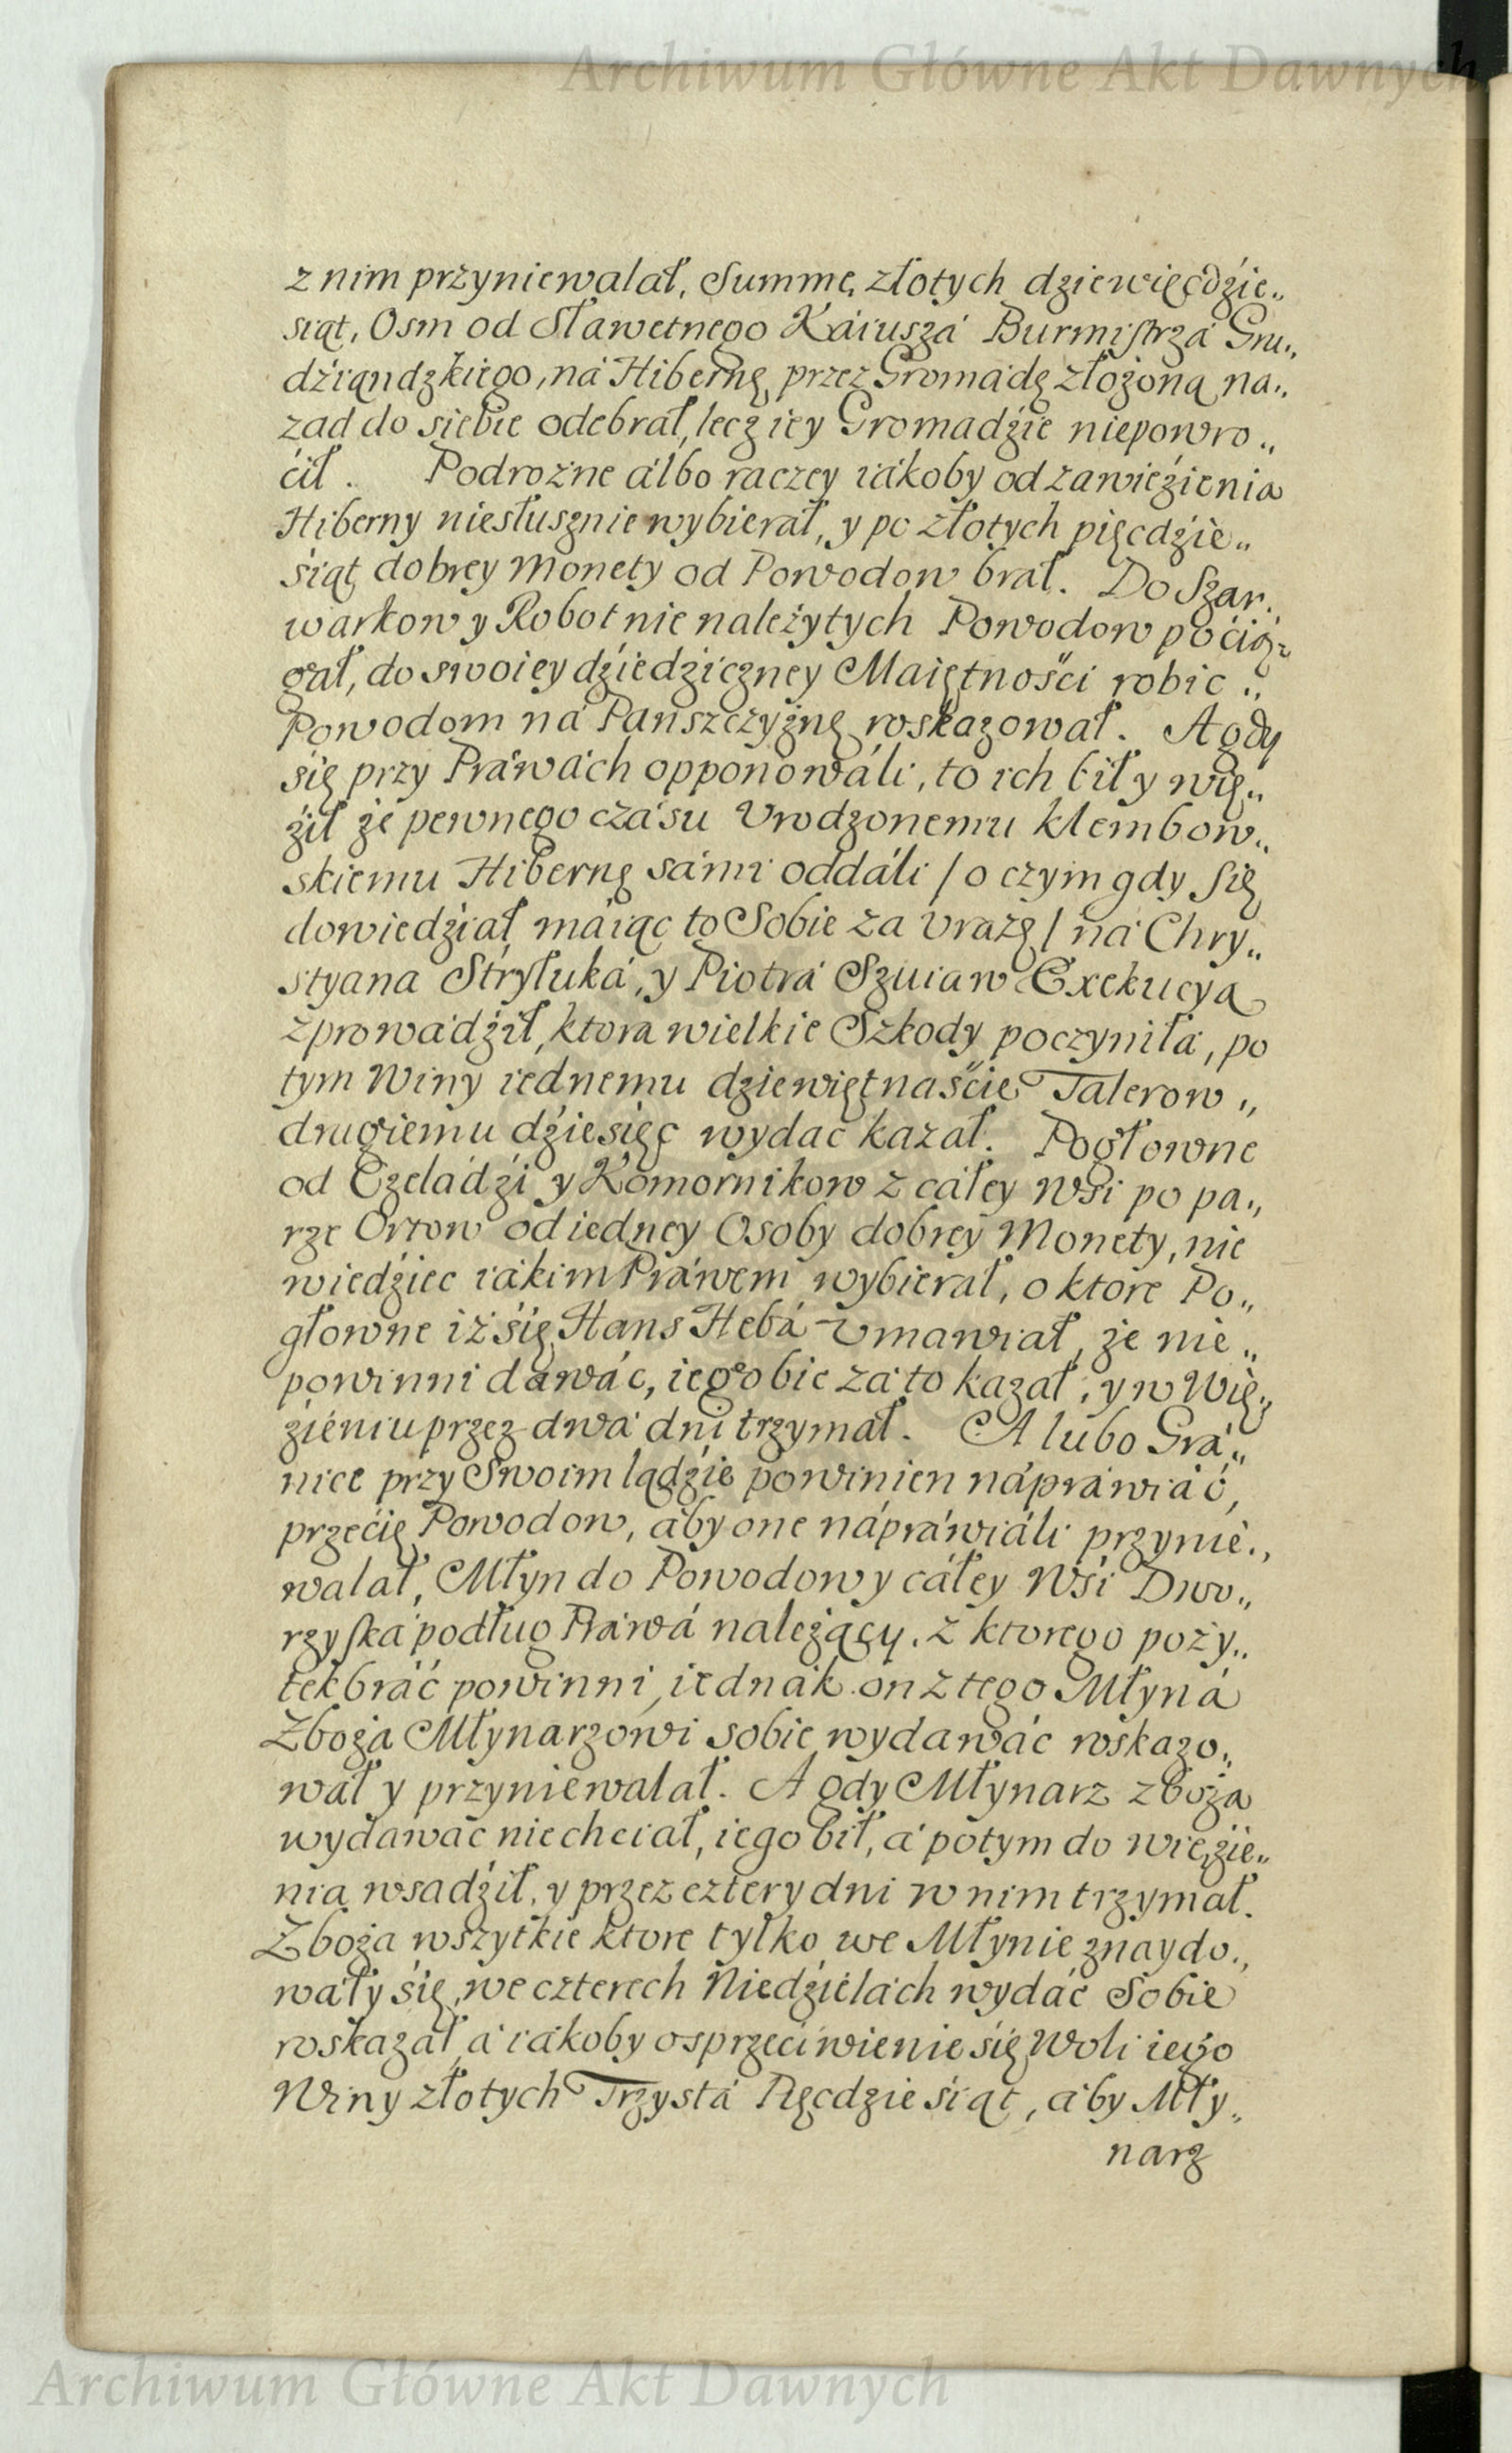 Archiwum Główne Akt Dawnych
z nim przyniewalał, Summę złotych dziewięćdźie„
siąt, Osm od Sławetnego Káiuszá Burmistrzá Gru„
dźiąndzkiego, ná Hibernę przez Gromádę złożoną na„
zad do siebie odebrał, lecz iey Gromadźie niepowro„
ćił. Podrożne álbo raczey iákoby od zawieźienia
Hiberny niesłusznie wybierał, y po złotych pięcdźie„
śiąt dobrey Monety od Powodow brał. Do Szar„
warkow y Robot nie należytych Powodow poćią„
gał, do swoiey dźiedziczney Maiętnośći robic„
Powodom ná Panszczyznę roskazował. A gdy
się przy Práwách opponowáli, to ich bił y wię„
źił że pewnego czásu Vrodzonemu Klembow„
skiemu Hibernę sámi oddáli / o czym gdy się
dowiedźiał máiąc to Sobie za vrazę / ná Chry„
styana Stryłuká, y Piotrá Szuiaw Exekucyą
zprowádźił, ktora wielkie Szkody poczyniłá, po
tym Winy iednemu dziewiętnaśćie Talerow„
drugiemu dźiesięc wydac kazał. Pogłowne
od Czeládźi y Komornikow z cáłey Wsi po pa„
rze Ortow od iedney Osoby dobrey Monety, nie
wiedźiec iákim Práwem wybierał, o ktore Po„
głowne iż śię Hans Hebá vmawiał, że nie„
powinni dáwác, iego bic zá to kazał, y w Wię„
źieniu przez dwá dni trzymał. A lubo Grá„
nice przy Swoim lądźie powinien nápráwiáć,
przećię Powodow, áby one nápráwiáli przynie„
walał, Młyn do Powodow y cáłey Wśi Dwo„
rzyská podług Práwá należący, z ktorego poży„
tek bráć powinni, iednák on z tego Młyná
Zboża Młynarzowi sobie wydawác roskazo„
wał y przyniewalał. A gdy Młynarz zboża
wydawác niechciał, iego bił, á potym do więźie„
nia wsadźił, y przez cztery dni w nim trzymał.
Zboża wszytkie ktore tylko we Młynie znaydo„
wáły się, we czterech Niedźielách wydáć Sobie
roskazał, á iákoby o sprzeciwienie się Woli iego
Winy złotych Trzystá Pięcdzieśiąt, áby Mły„
narz
Archiwum Główne Akt Dawnych